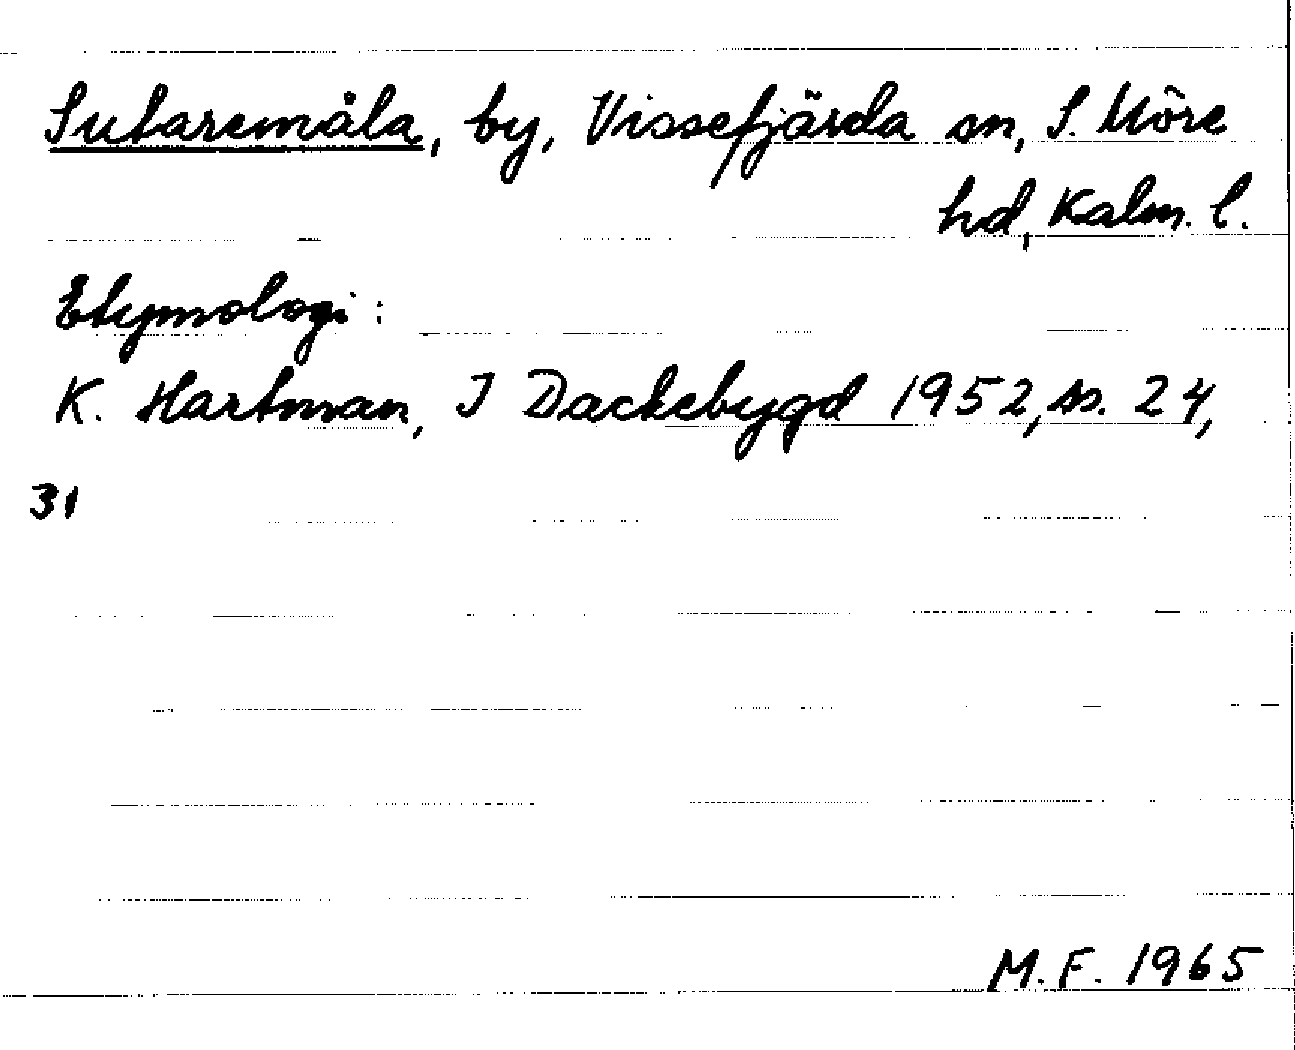 Sutaremåla, by, Vissefjärda sn, S. Möre
hd, Kalm. l.
Etymologi:
K. Hartman, I Dackebygd 1952, ss. 24,
31
M.F. 1965